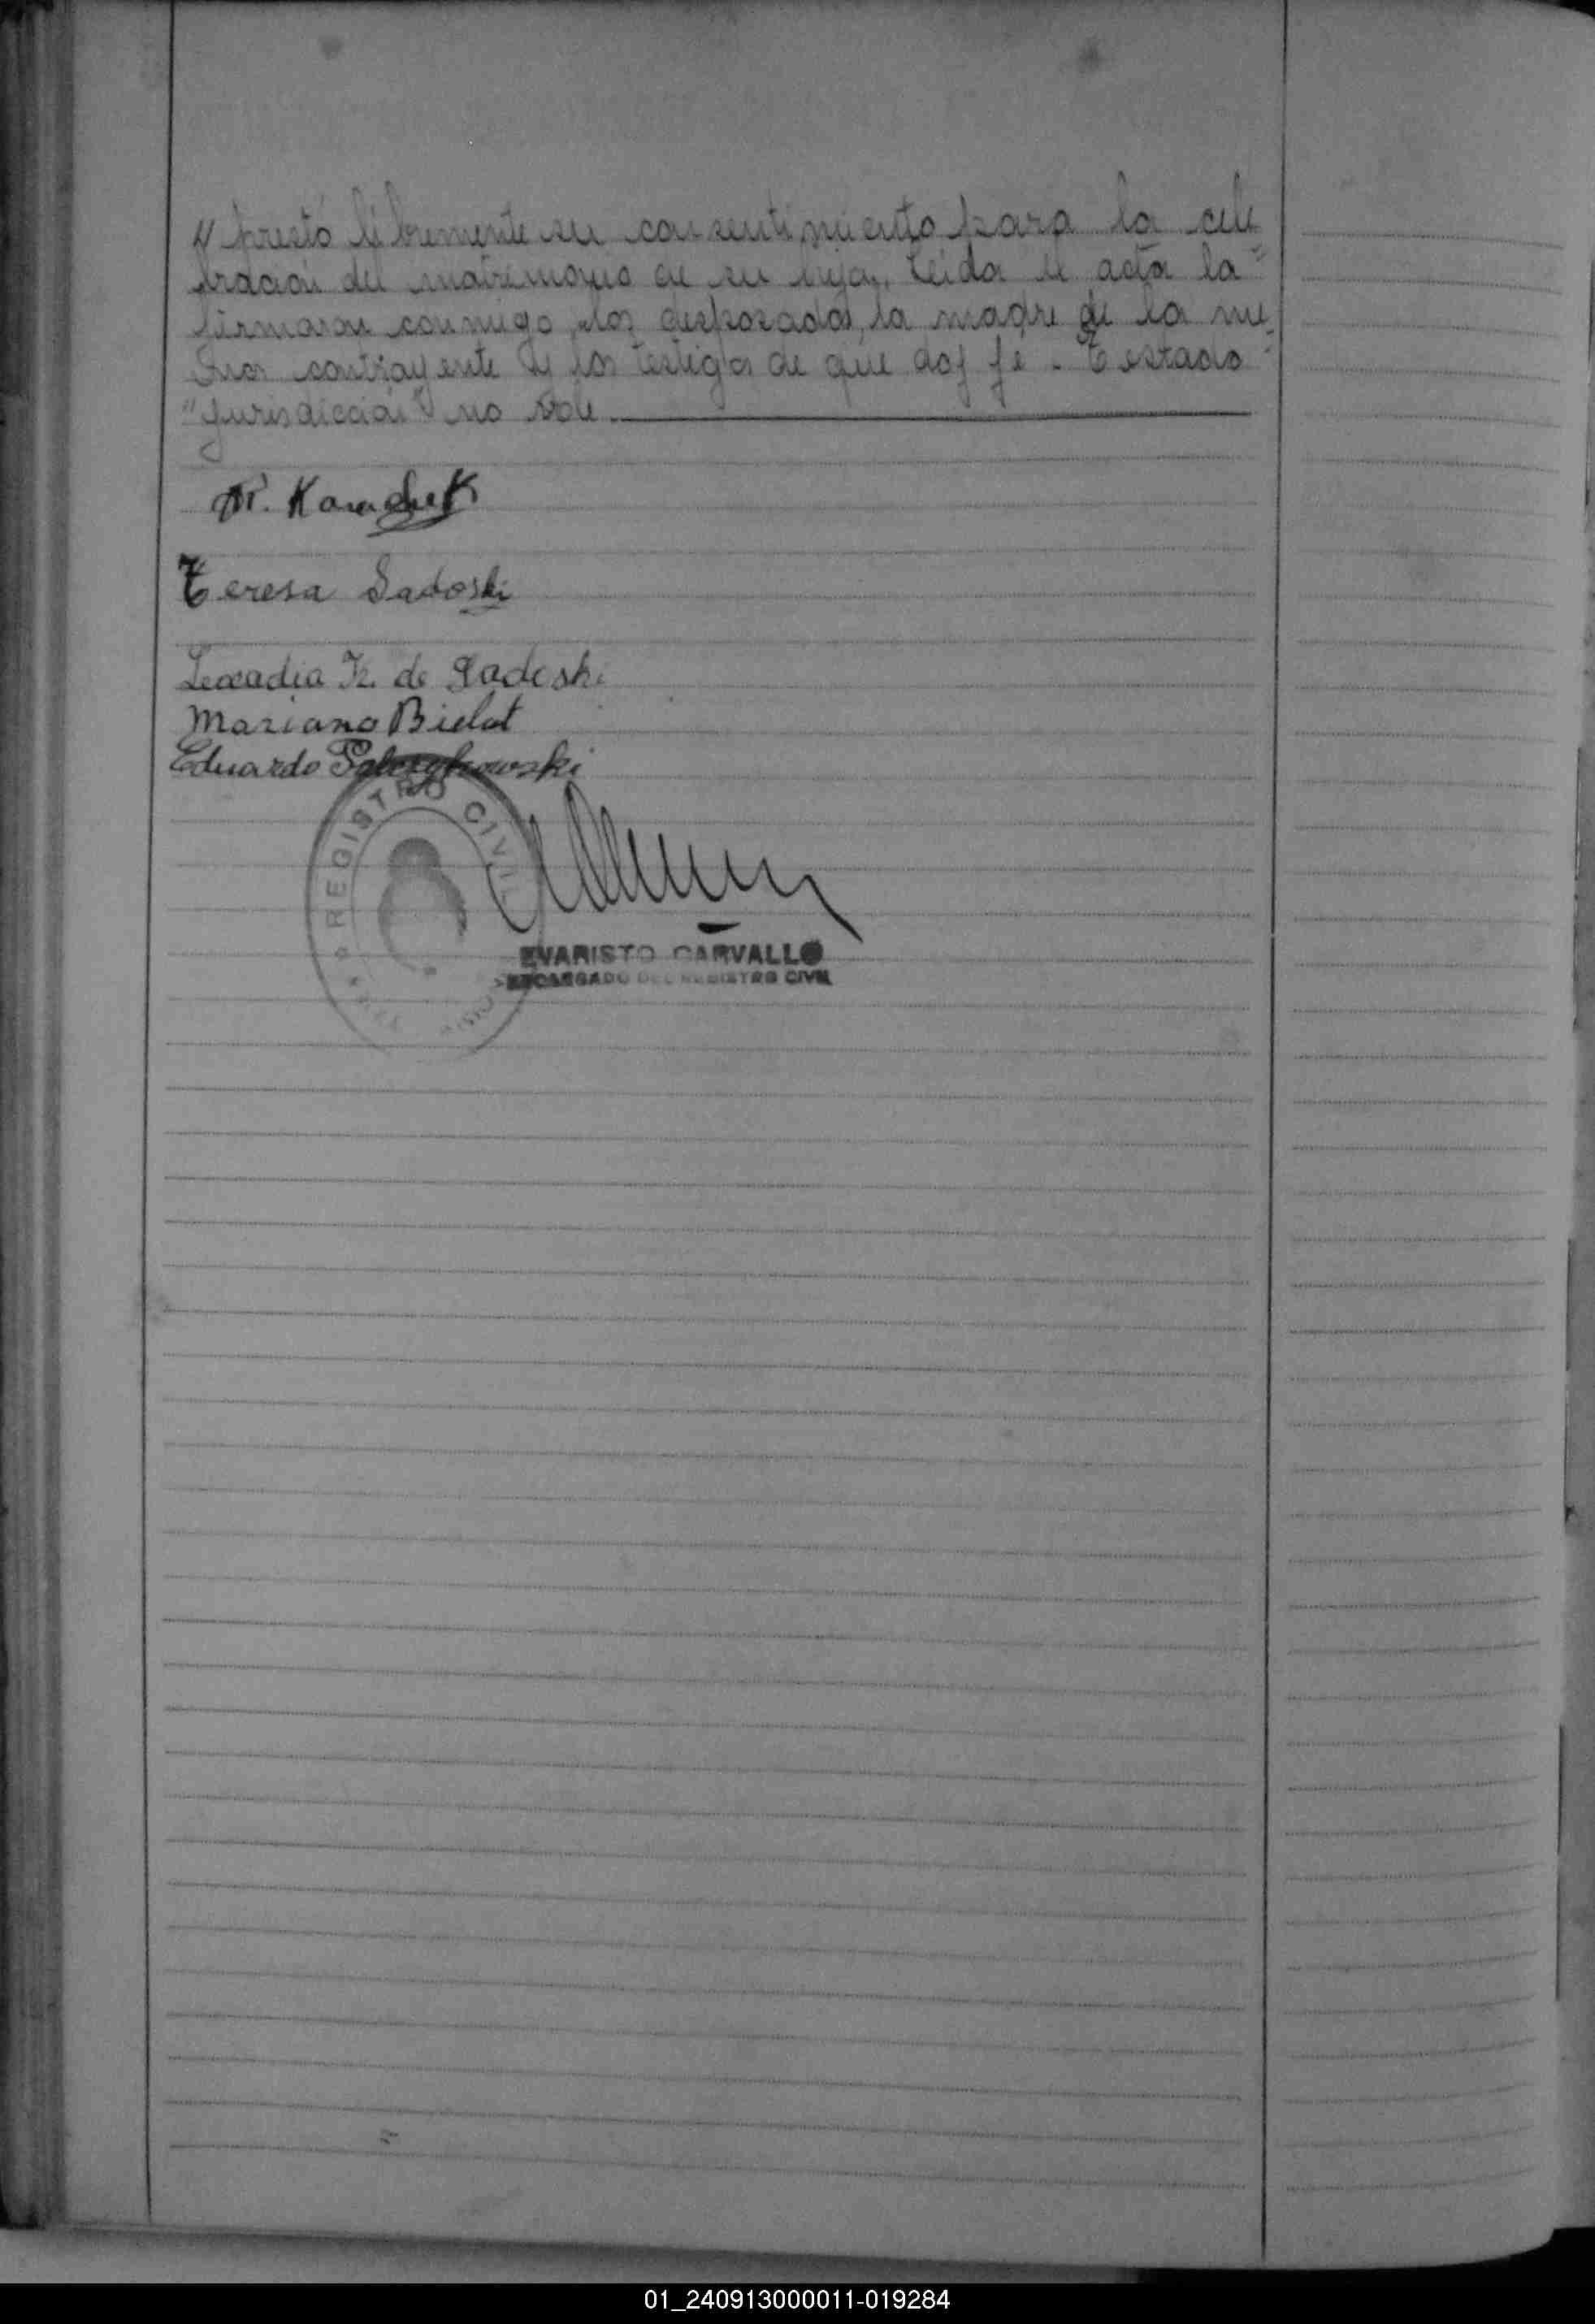 y prestó libremente su consentimiento para la cele
bración del matrimonio de su hija. Leida el acta la
firmaron conmigo, los desposados, la madre de la me
nor contrayente y los testigos de que doy fé. Testado
"jurisdicción" no vale
Teresa Sadoski
Leocadia K. de Sadoski
Mariano Bielat
Eduardo
REGISTRO CIVIL
EVARISTO CARVALLO
ENCARGADO DEL REGISTRO CIVIL
01_240913000011-019284